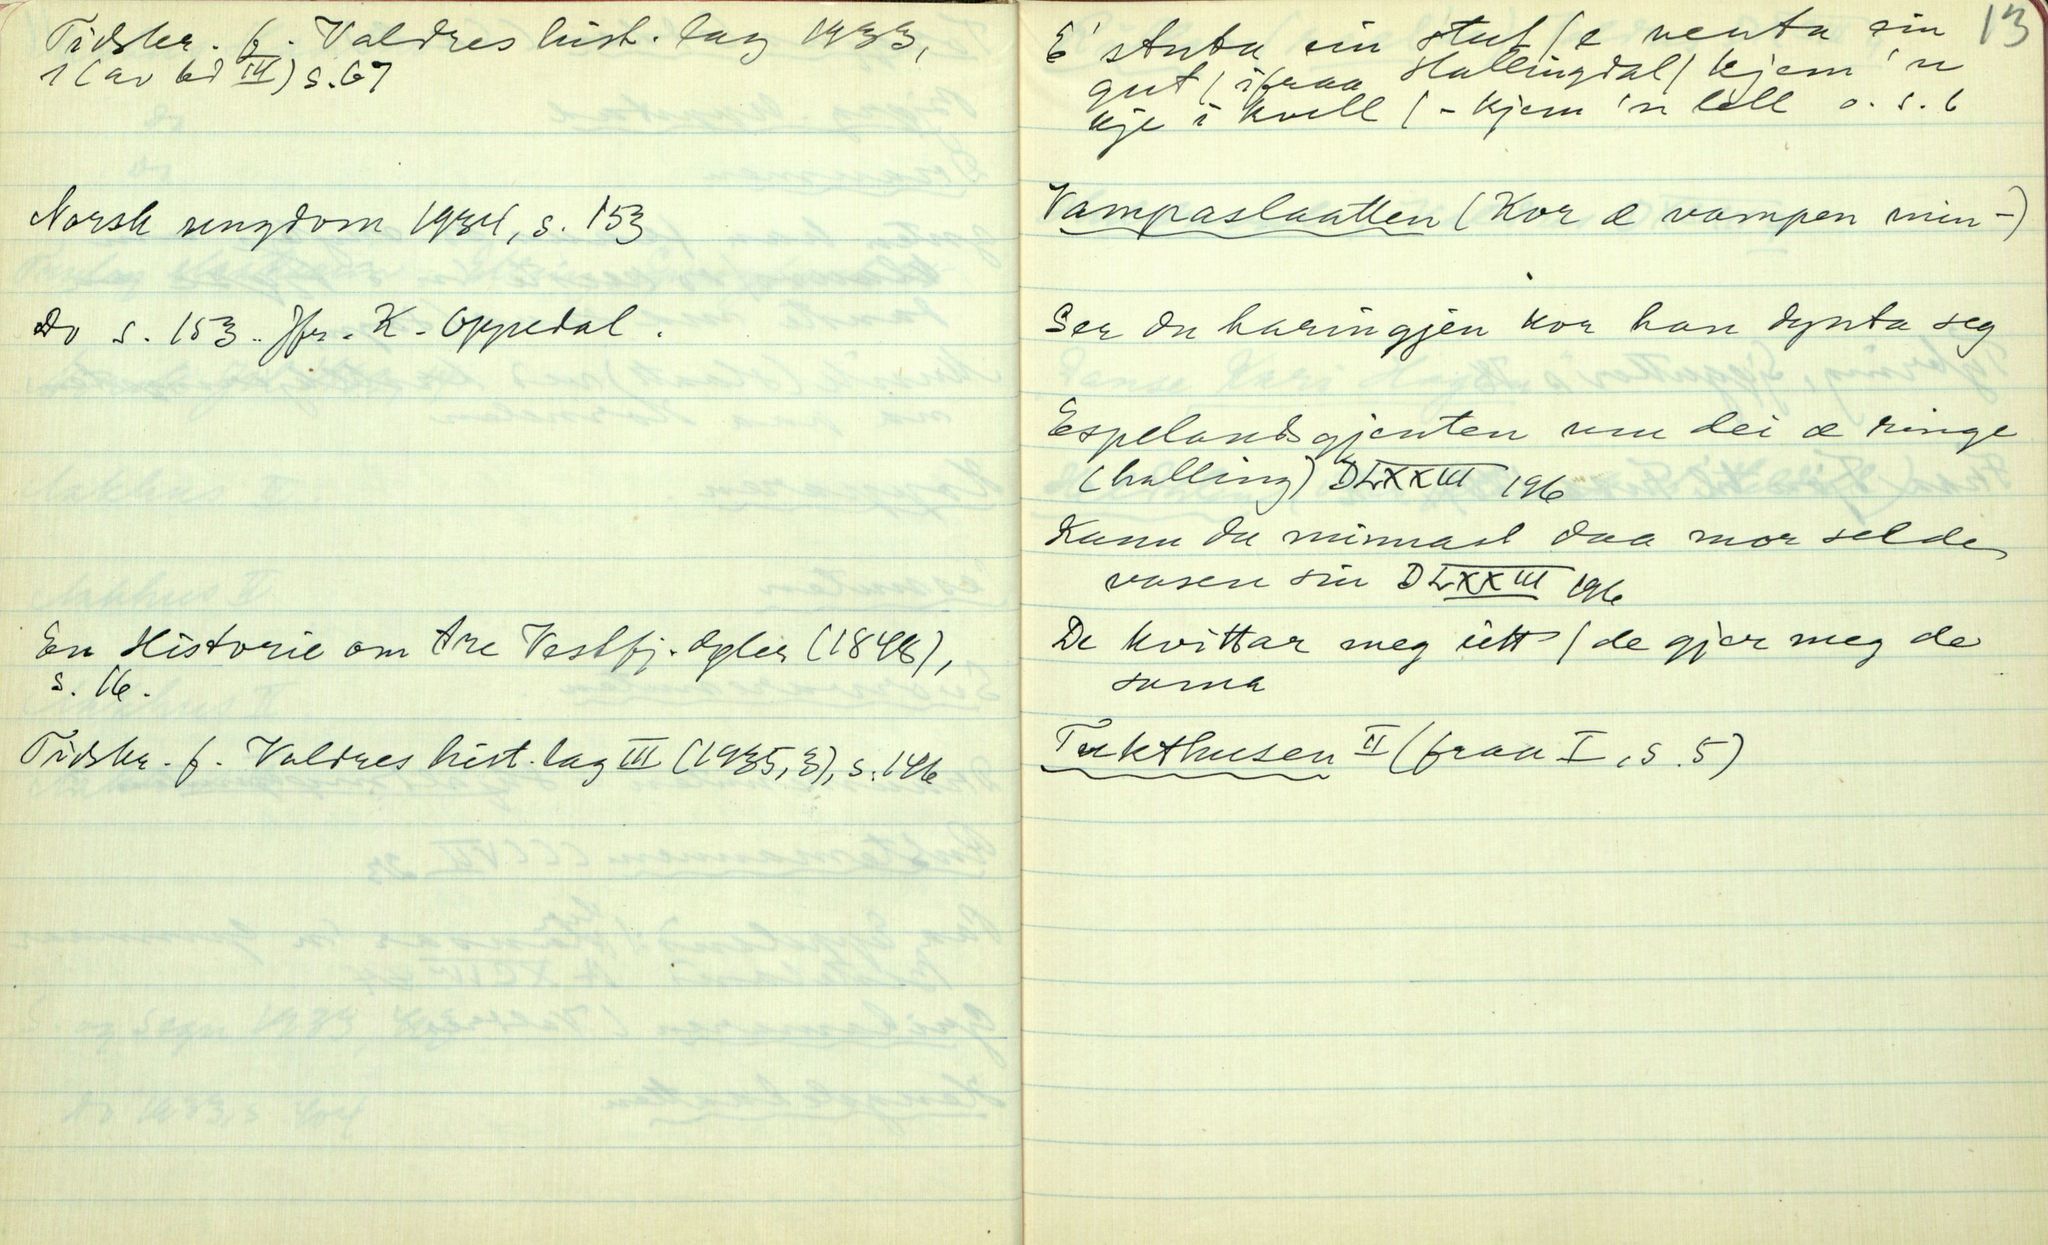 Tidskr. f. Valdres hist. lag 1933,
1 (av bd III) s. 67
Norsk ungdom 1934, s. 153
Do s. 153. Jfr. K. Oppedal.
En Historie om Are Vestfj. døler (1848),
s. 16.
Tidskr. f. Valdres hist. lag III (1935, 3), s. 146
13
E stuta ein stut / e venta ein
gut / ifraa Hallingdal / kjem 'n
kje i kvell / - kjem 'n lell o. s. b
Vampaslaatten (Kor æ vampen min -)
Ser du haringjen kor han dynta seg
Espelandsgjenten um dei æ ringe
(halling) DLXXIII 196
Kann du minnast daa mor selde
vasen sin DLXXIII 196
De kvittar meg eitt / de gjer meg de
sama
Tukthusen II (fraa I, s. 5)